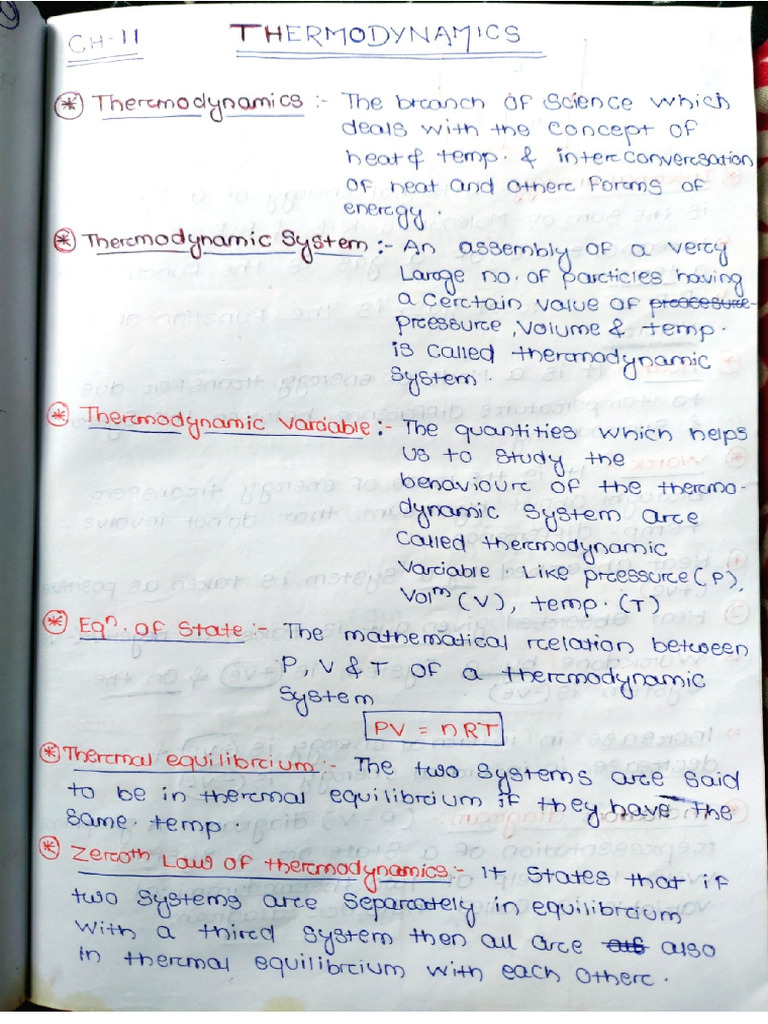 CH-11 THERMODYNAMICS
* Thermodynamics :- The branch of science which
deals with the concept of
heat & temp. & interconversation
of heat and other forms of
energy.
* Thermodynamic System :- An assembly of a very
Large no. of particles having
a certain value of
pressure, volume & temp.
is called thermodynamic
system.
* Thermodynamic variable :- The quantities which helps
us to study the
behaviour of the thermo-
dynamic system are
called thermodynamic
variable Like pressure (P),
Volm (V), temp. (T)
* Eqn. of State :- The mathematical relation between
P, V & T of a thermodynamic
system
PV = nRT
* Thermal equilibrium :- The two systems are said
to be in thermal equilibrium if they have the
same temp.
* Zeroth Law of thermodynamics :- It states that if
two systems are separately in equilibrium
with a third system then all are also
in thermal equilibrium with each other.